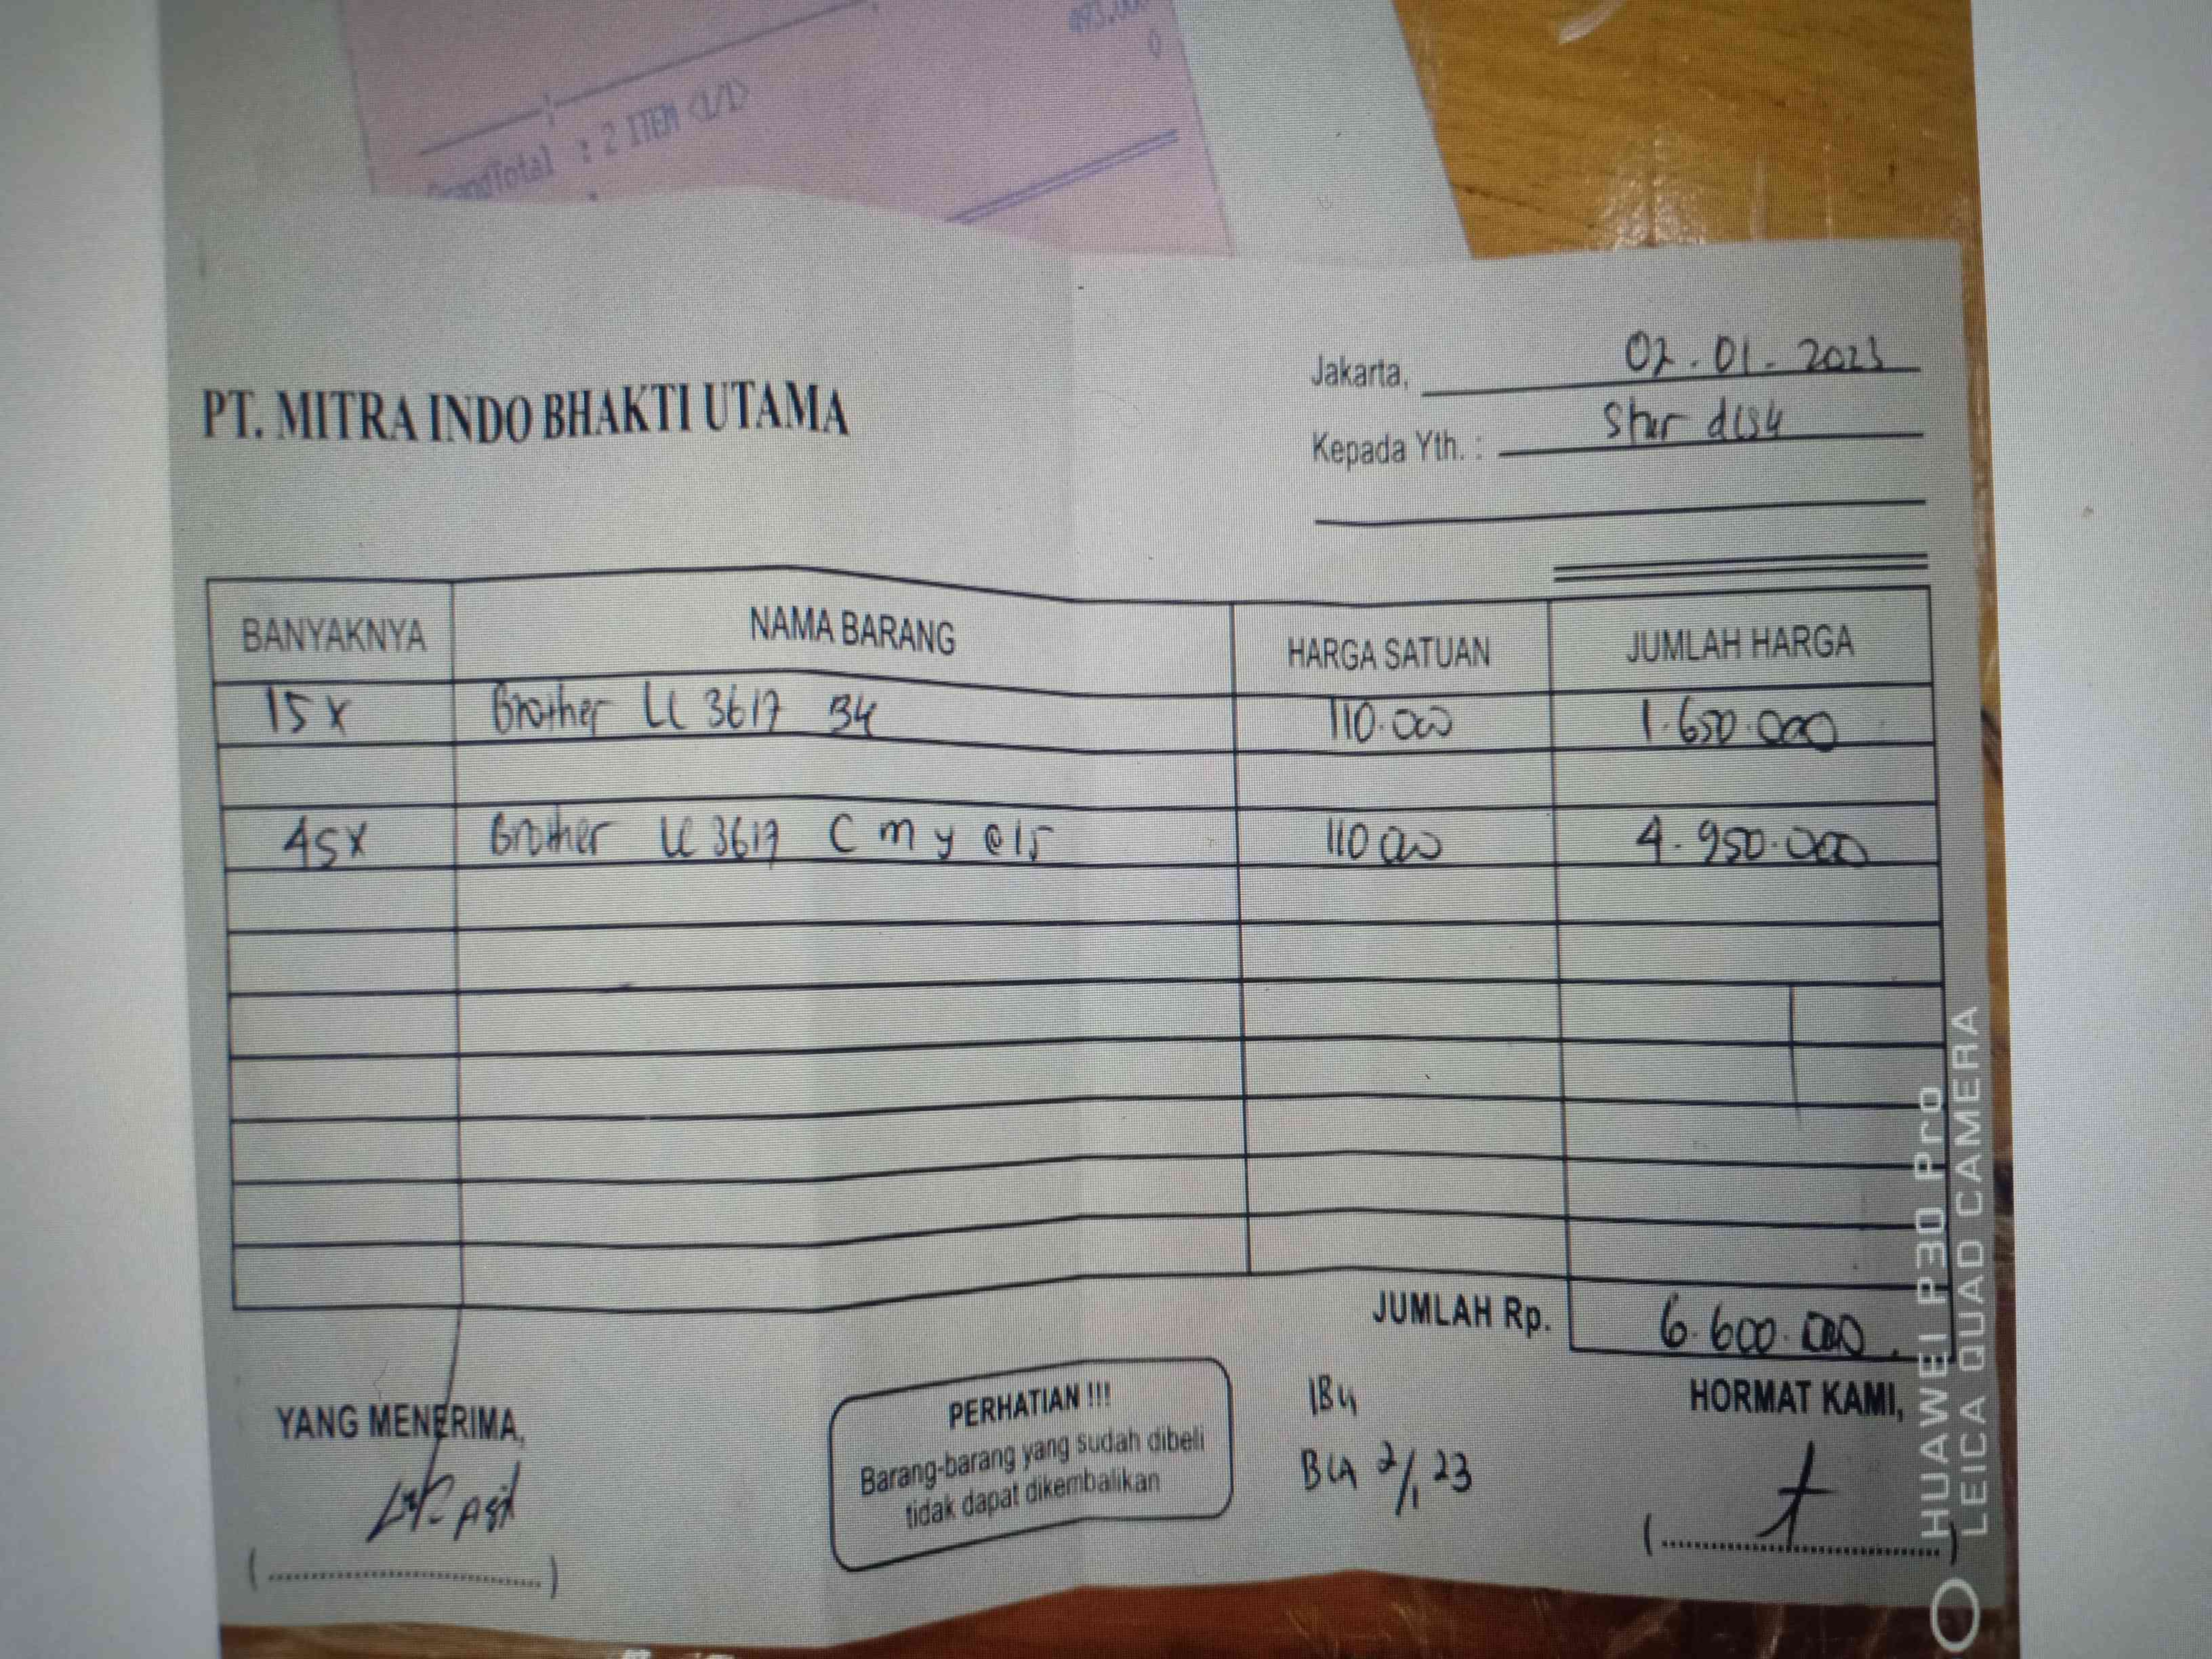 GrandTotal : 2 ITEM <1/1>
0
PT. MITRA INDO BHAKTI UTAMA
Jakarta, 02.01.2023
Kepada Yth. : Star disk
BANYAKNYA NAMA BARANG HARGA SATUAN JUMLAH HARGA
15x Brother LC 3617 BK 110.000 1.650.000
45x Brother LC 3617 C m y @15 110 000 4.950.000
JUMLAH Rp. 6.600.000
YANG MENERIMA,
PERHATIAN !!!
Barang-barang yang sudah dibeli
tidak dapat dikembalikan
BCA 2/1 23
HORMAT KAMI,
HUAWEI P30 Pro
LEICA QUAD CAMERA